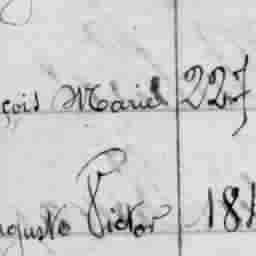 çois Marie 227
uguste Victor 181